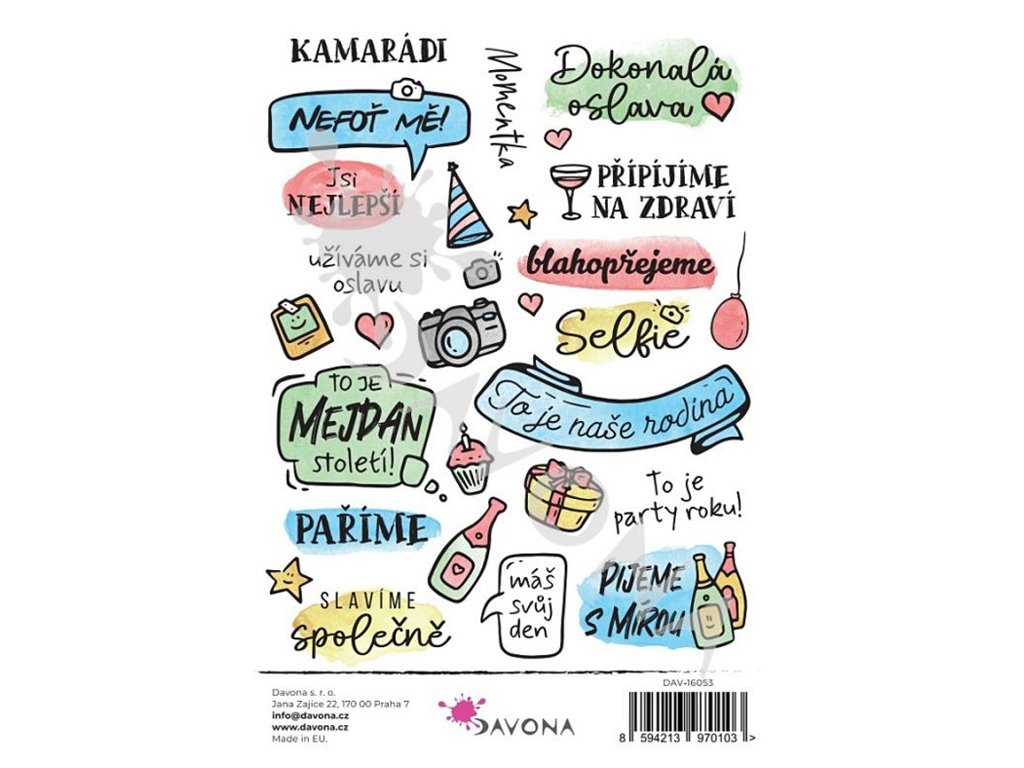 KAMARÁDI
NEFOŤ MĚ!
Momentka
Dokonalá
oslava
Jsi
NEJLEPŠÍ
PŘIPÍJÍME
NA ZDRAVÍ
užíváme si
oslavu
blahopřejeme
Selfie
TO JE
MEJDAN
století!
To je naše rodina
To je
party roku!
PAŘÍME
SLAVÍME
společně
máš
svůj
den
PIJEME
S MÍROU
DAV-16053
Davona s. r. o.
Jana Zajíce 22, 170 00 Praha 7
info@davona.cz
www.davona.cz
Made in EU.
DAVONA
8 594213 970103 >